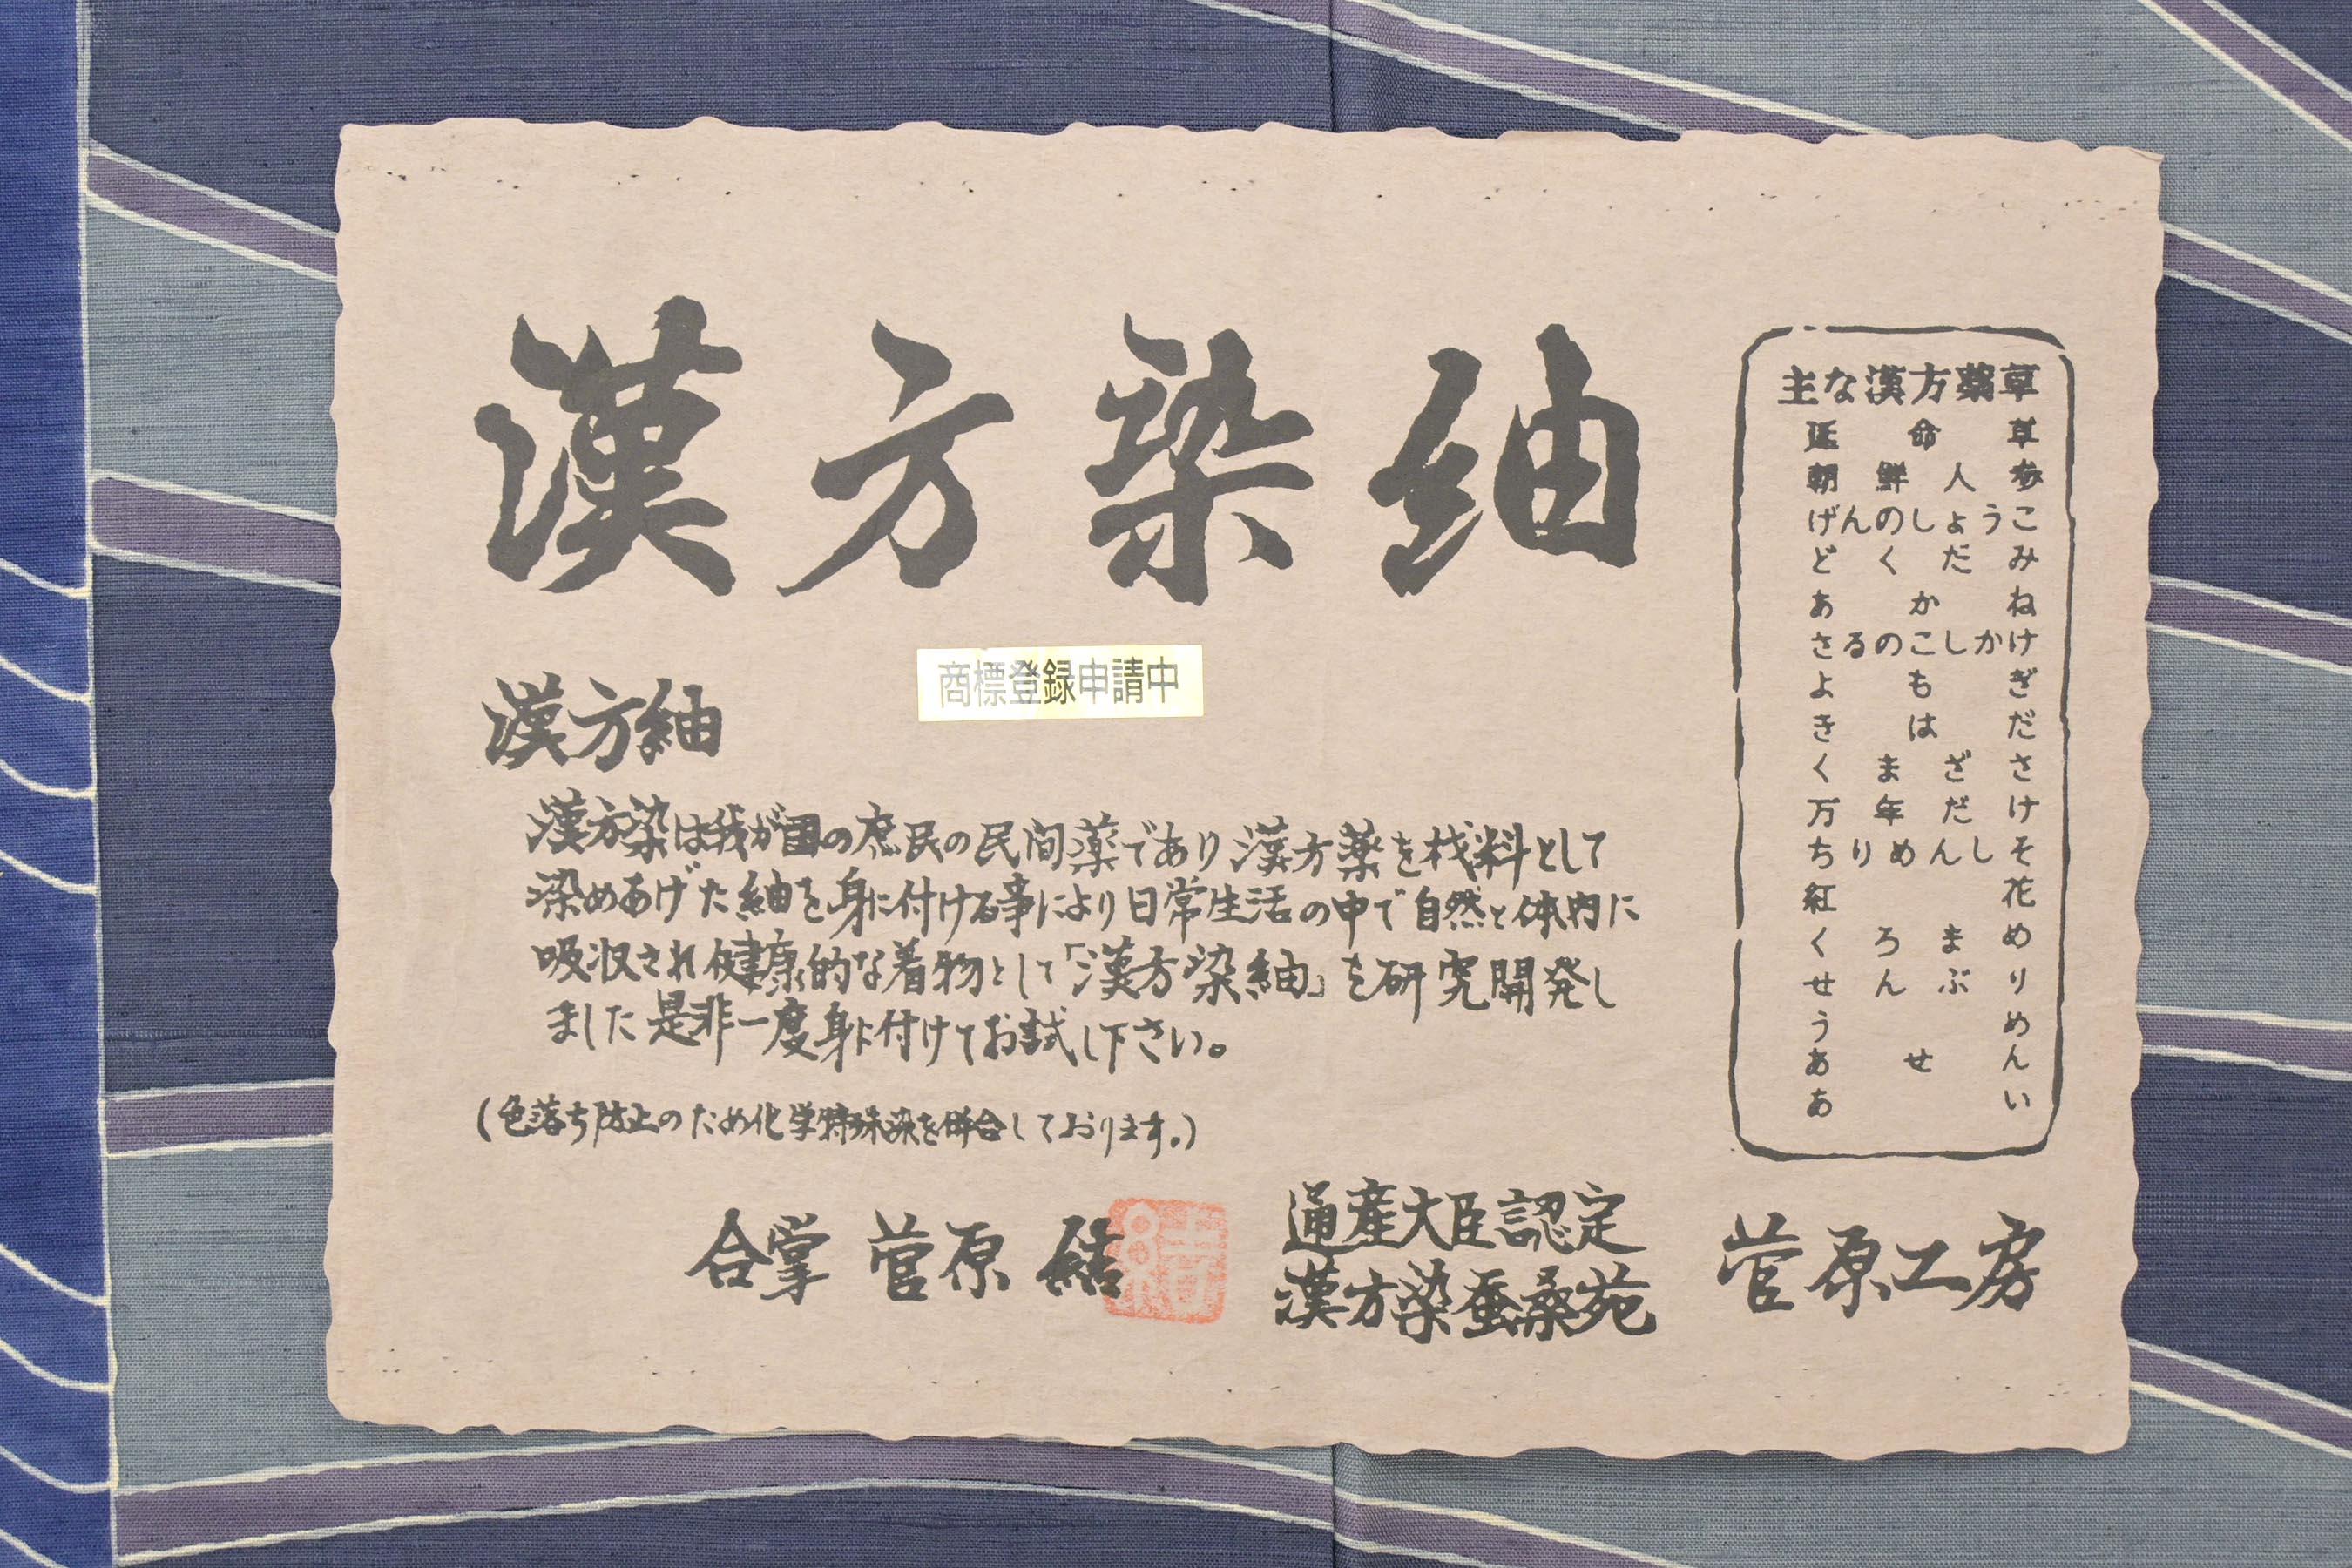 漢方染紬
商標登録申請中
漢方紬
漢方染は我が国の庶民の民間薬であり漢方薬を材料として
染めあげた紬を身に付ける事により日常生活の中で自然と体内に
吸収され健康的な着物として「漢方染紬」を研究開発し
ました是非一度身に付けてお試し下さい。
(色落ち防止のため化学特殊染を併合しております。)
合掌 菅原 結
結
通産大臣認定
漢方染蚕桑苑
菅原工房
主な漢方薬草
延命草
朝鮮人参
げんのしょうこ
どくだみ
あかね
さるのこしかけ
よもぎ
きはだ
くまざさ
万年だけ
ちりめんしそ
紅花
くろまめ
せんぶり
うめ
あせん
あい